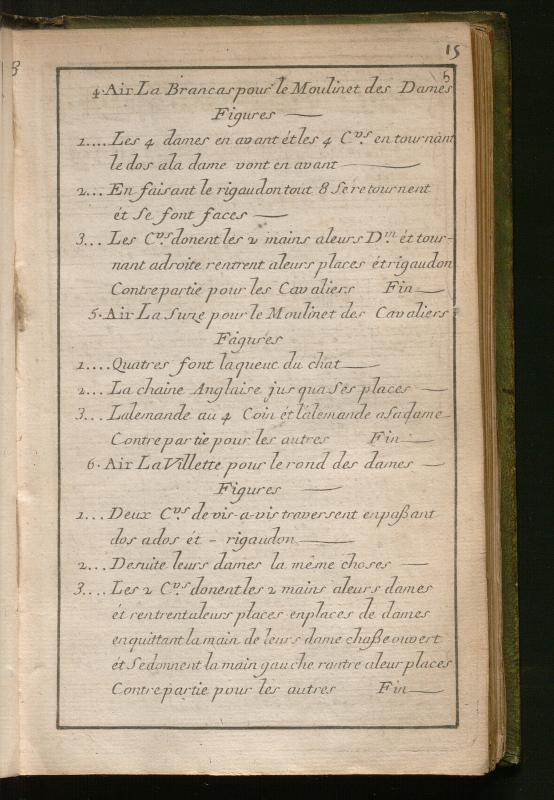 15
3
6
4. Air La Brancas pour le Moulinet des Dames
Figures
1.... Les 4 dames en avant ét les 4 C.vs en tournant
le dos ala dame vont en avant
2... En faisant le rigaudon tout 8 Se retournent
ét Se font faces
3... Les C.vs donent les 2 mains aleurs D.m ét tour-
nant adroite rentrent aleurs places ét rigaudon
Contre partie pour les Cavaliers Fin
5. Air La Suze pour le Moulinet des Cavaliers
Fagures
1.... Quatres font laqueuc du chat
2... La chaine Anglaise jus qua Sés places
3... Lalemande au 4 Coin ét lalemande asadame
Contre partie pour les autres Fin
6. Air La Villette pour le rond des dames
Figures
1... Deux C.vs de vis-a-vis traversent enpaßant
dos ados ét - rigaudon
2... Desuite leurs dames la même choses
3.... Les 2 C.vs donent les 2 mains aleurs dames
ét rentrent aleurs places enplaces de dames
enquittant la main de leurs dame chaße ouvert
ét Sedonnent la main gauche rantre aleur places
Contre partie pour les autres Fin